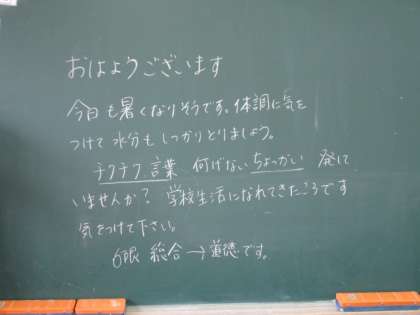 おはようございます
今日も暑くなりそうです。体調に気を
つけて 水分もしっかりとりましょう。
チクチク言葉 何げないちょっかい 発して
いませんか? 学校生活になれてきたころです
気をつけて下さい。
6限 総合→道徳です。